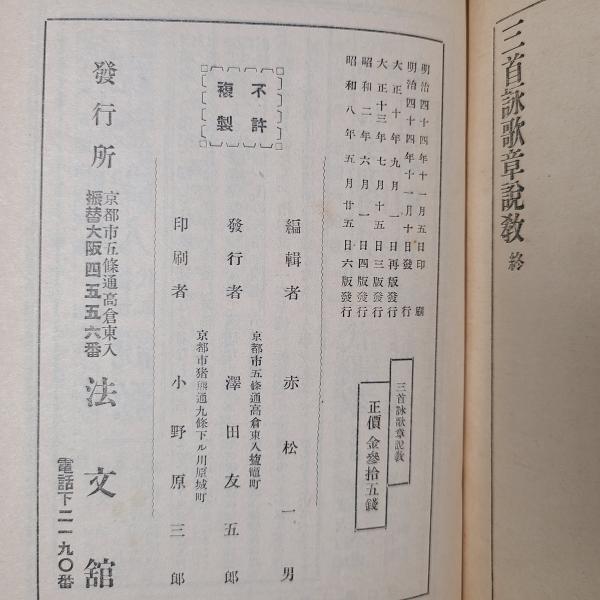 三首詠歌章說教 終
明治四十四年十一月五日印刷
明治四十四年十一月十日發行
大正十年九月一日再版發行
大正十三年七月十五日三版發行
昭和二年六月一日四版發行
昭和八年五月廿五日六版發行
三首詠歌章說教
正價金參拾五錢
不許
複製
編輯者 赤松一男
京都市五條通高倉東入塩竈町
發行者 澤田友五郎
京都市猪熊通九條下ル川原城町
印刷者 小野原三郎
發行所 京都市五條通高倉東入 法文舘
振替大阪四五五六番
電話下二一九〇番